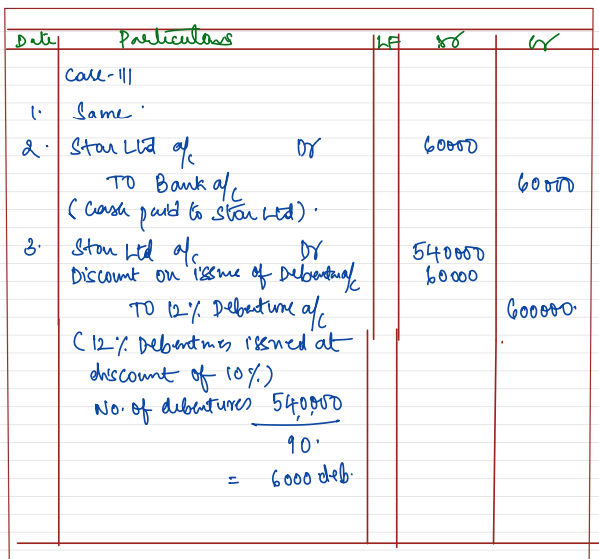 Date Particulars LF Dr Cr
Case-III
1. Same.
2. Star Ltd a/c Dr 60000
TO Bank a/c 60000
(Cash paid to Star Ltd).
3. Star Ltd a/c Dr 540000
Discount on issue of Debenture a/c 60000
TO 12% Debenture a/c 600000.
(12% Debentures issued at
discount of 10%)
No. of debentures 540,000
90.
= 6000 deb.